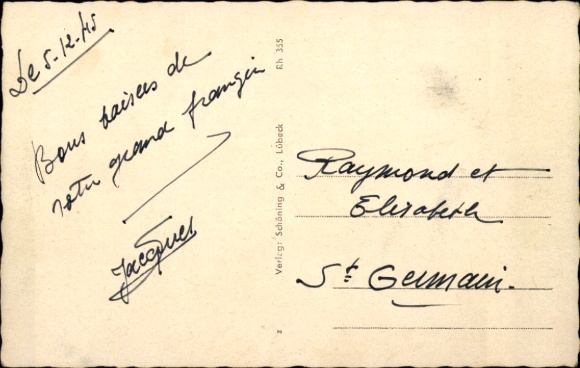 Le 5-12-45
Bons baisers de
votre grand frangin
Jacques
Verlag: Schöning & Co., Lübeck
Rh 355
z
Raymond et
Elisabeth
St Germain.